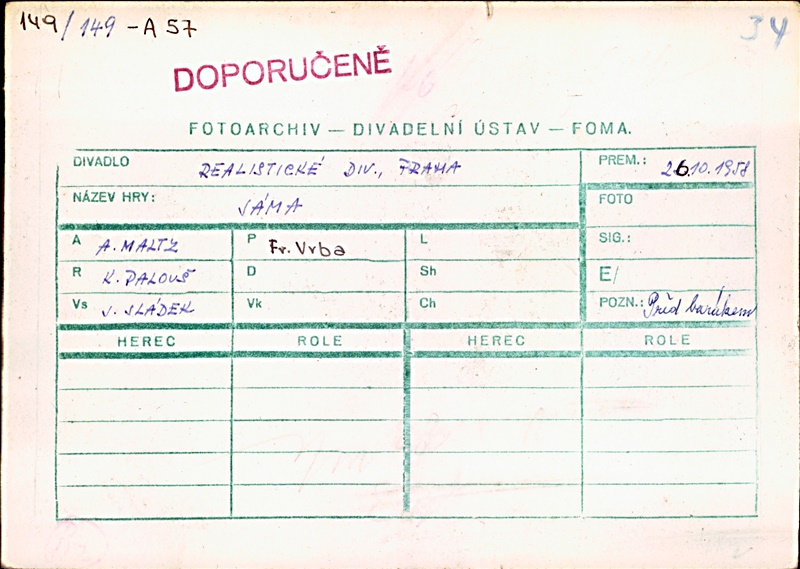 149/149-A 57
34
DOPORUČENĚ
FOTOARCHIV — DIVADELNÍ ÚSTAV — FOMA.
DIVADLO REALISTICKÉ DIV., PRAHA
PREM.: 26.10.1958
NÁZEV HRY: JÁMA
FOTO
A A. MALTZ P Fr. Vrba L
SIG.:
R K. PALOUŠ D Sh
E/
Vs J. SLÁDEK Vk Ch
POZN.: Před
HEREC ROLE HEREC ROLE